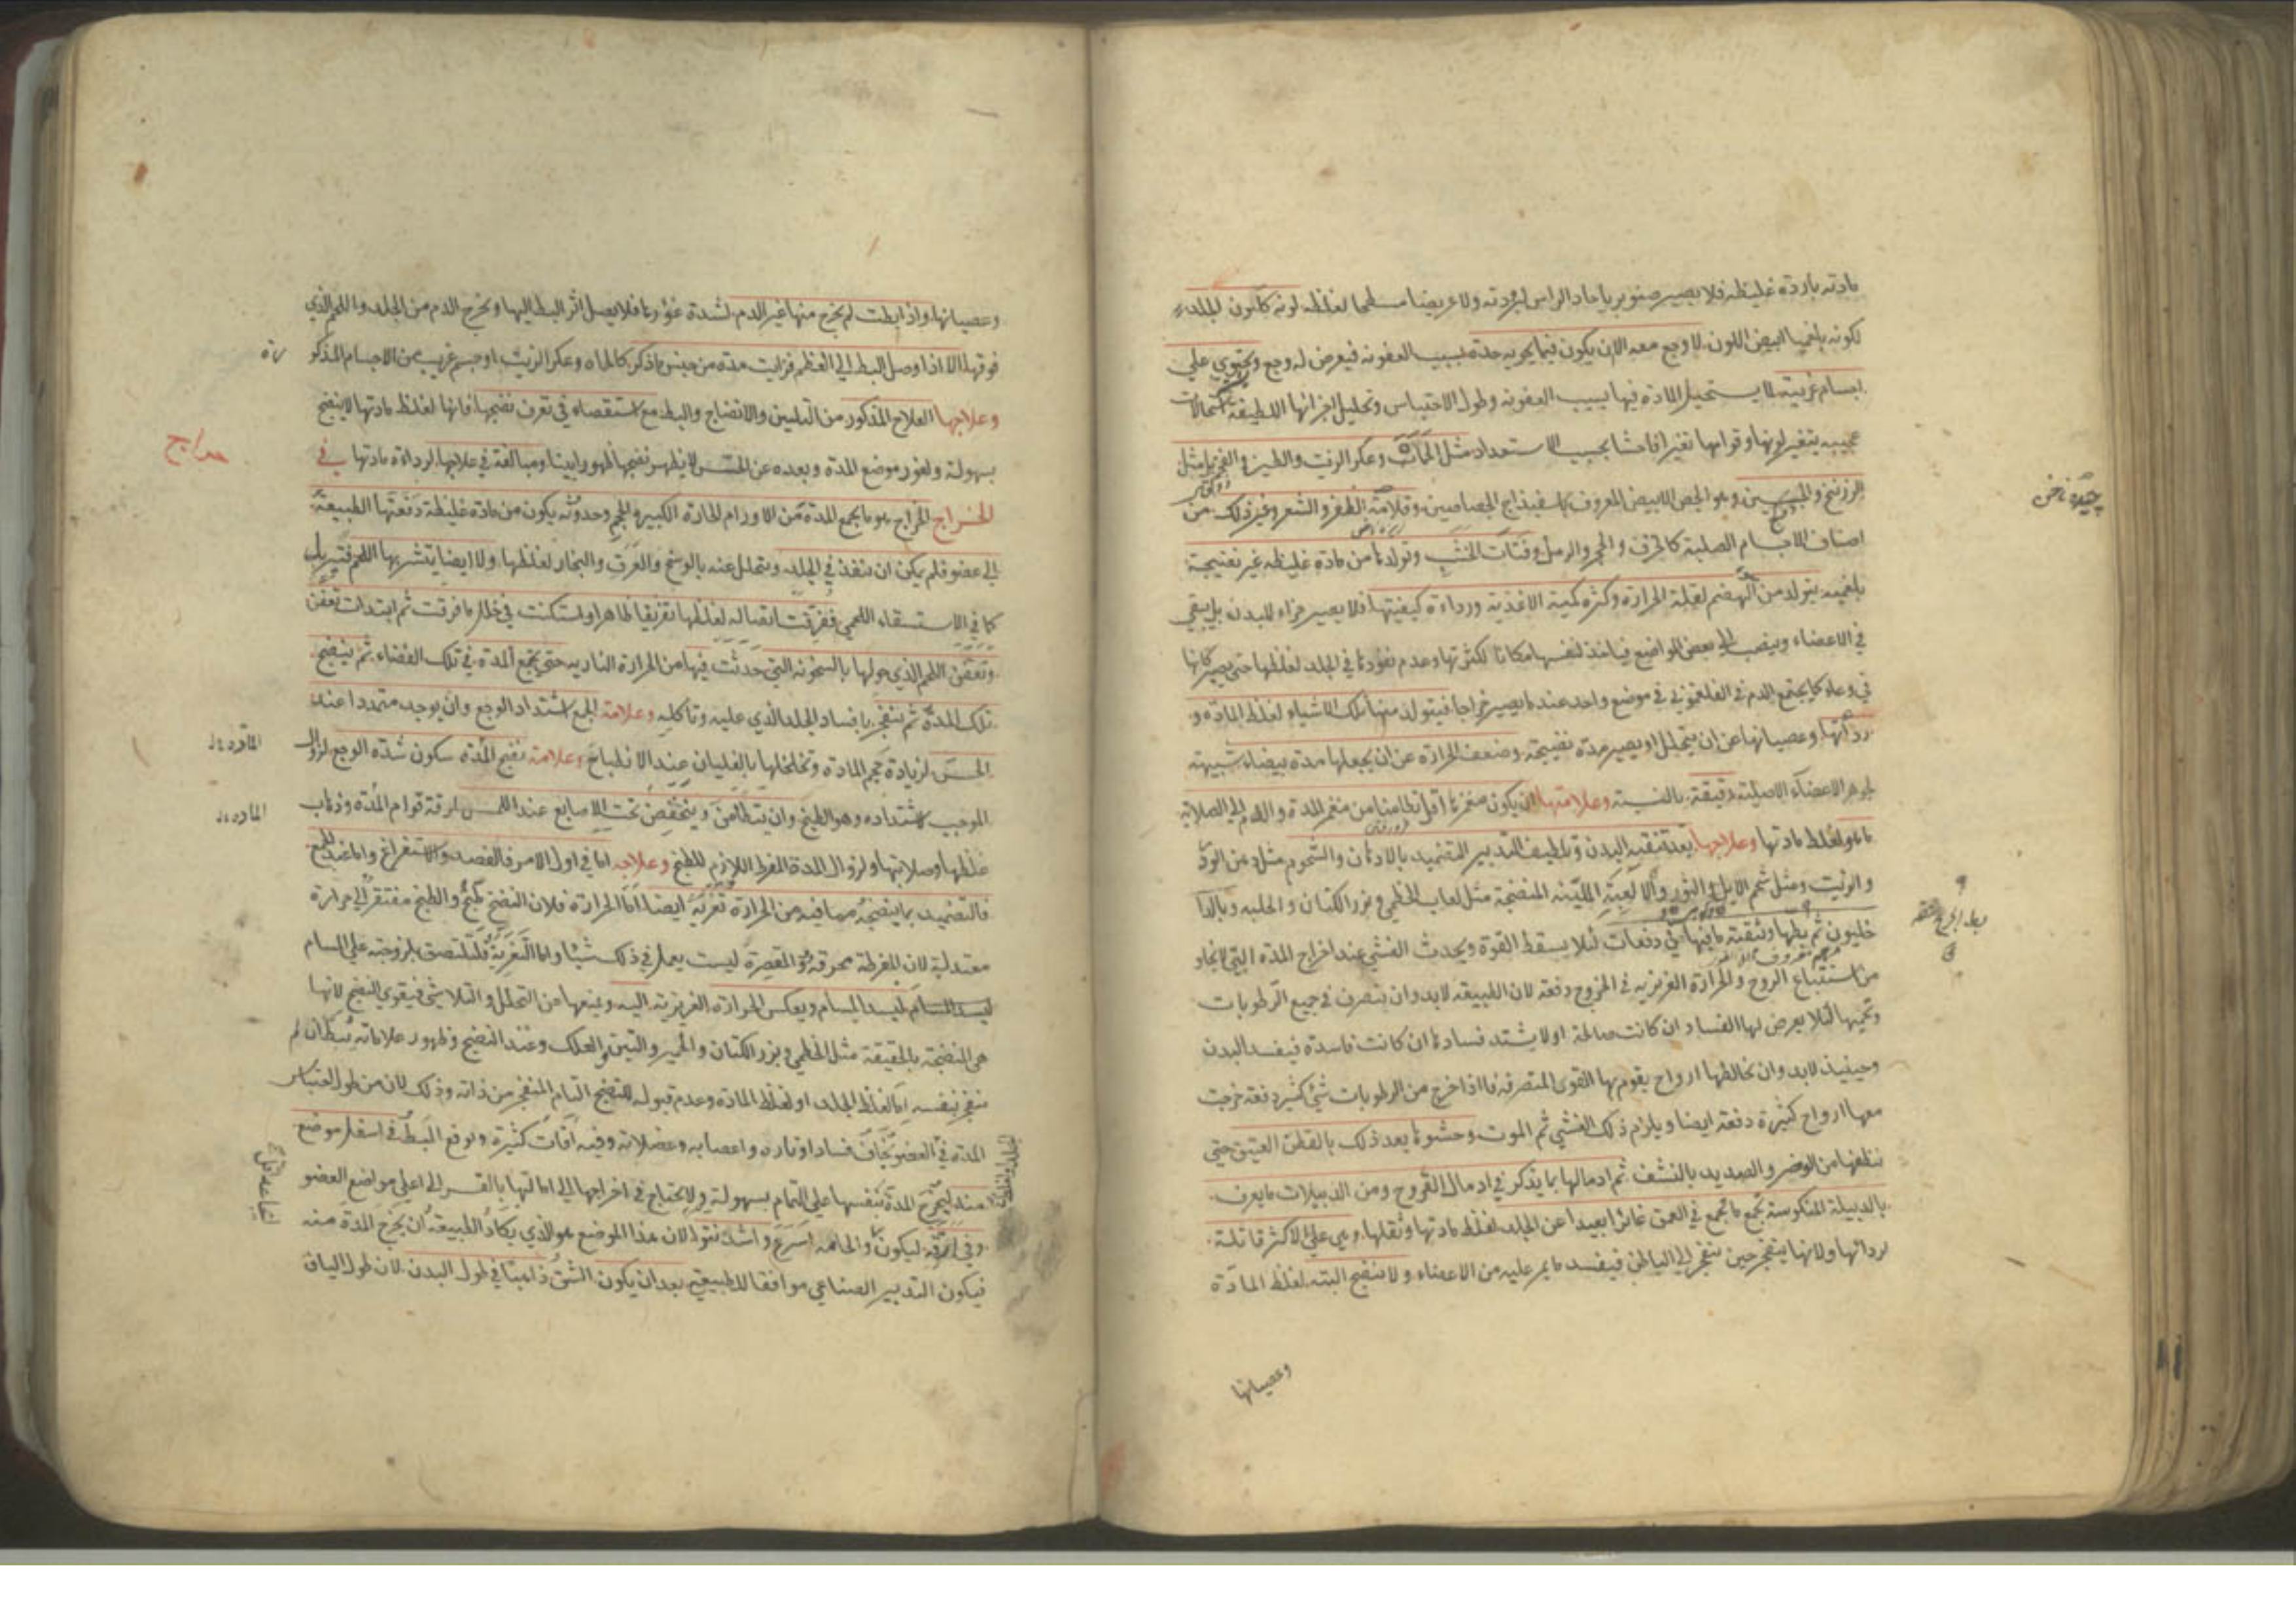 مادته باردة غليظه فلا يصير صنوبريا حاد الراس لبرودته ولا عريضا مسطحا لغلظه لونه كلون الجلد
لكونه بلغميا ابيض اللون لا وجع معه الا ان يكون فيما يحويه حدة بسبب العفونه فيعرض له وجع ويحتوي علي
اجسام غريبة لما يستحيل المادة فيها بسبب العفونه وطول الاحتباس وتحليل اجزائها اللطيفة استحالات
عجيبه يتغير لونها وقوامها تغيرا فاحشا بحسب الاستعداد مثل الحمأة وعكر الزيت والطين و
الزرنيخ والجبسين وهو الجص الابيض المعروف باسفيذاج الجصاصين وقلامة الظفر والشعر وغير ذلك من
اصناف الاجسام الصلبة كالخزف والحجر والرمل وفتات الخشب وتولدها من مادة غليظه غير نضيجة
بلغميه يتولد من الهضم لقلة الحرارة وكثرة كمية الاغذية ورداءة كيفيتها فلا يصير جزاء للبدن بل يبقي
في الاعضاء وينصب الي بعض المواضع فياخذ لنفسها مكانا لكثرتها وعدم نفوذها في الجلد لغلظها حتي يصير كانها
في وعاء كما يجتمع الدم في الفلغموني في موضع واحد عند ما يصير خراجا فيتولد منها تلك الاشياء لغلظ المادة و
رداءتها وعصيانها عن ان يتحلل او يصير مدة نضيجة وضعف الحرارة عن ان يجعلها مدة بيضاء شبيهة
بجوهر الاعضاء الاصلية دقيقة بالنسبة وعلامتها ان يكون منغمزها اقل تطامنا من منغمز المدة والدم الي الصلابة
ما هو لغلظ مادتها وعلاجها بعد تنقيه البدن وتلطيف التدبير التضميد بالادهان والشحوم مثل دهن الورد
والزيت ومثل شحم الايل والثور والالعبة الملينه المنضجة مثل لعاب الخطمي وبزر الكتان والحلبه وبالدا
خليون ثم بطها وتنقية ما فيها في دفعات لئلا يسقط القوة ويحدث الغشي عند اخراج المدة التي
من استتباع الروح والحرارة الغريزيه في الخروج دفعة لان الطبيعه لابد وان يتصرف في جميع الرطوبات
وتحميها لئلا يعرض لها الفساد ان كانت صالحة او لا يشتد فسادها ان كانت فاسدة فيفسد البدن
وحينئذ لابد وان يخالطها ارواح يقوم بها القوي المتصرفه فاذا خرج من الرطوبات شئ كثير دفعة خرجت
معها ارواح كثيرة دفعة ايضا ويلزم ذلك الغشي ثم الموت وحشوها بعد ذلك بالقطن العتيق حتي
ينظفها من الوضر والصديد بالنشف ثم ادمالها بما يذكر في ادمال القروح ومن الدبيلات ما يعرف
بالدبيلة المنكوسة يجمع ما يجمع في العمق غائرا بعيدا عن الجلد لغلظ مادتها وثقلها وهي علي الاكثر قاتلة
لردائها ولانها ينفجر حين ينفجر الي الباطن فيفسد ما يمر عليه من الاعضاء ولا ينضج البته لغلظ المادة
وعصيانها
وعصيانها واذا بطت لم يخرج منها غير الدم لشدة غورها فلا يصل اثر البط اليها ويخرج الدم من الجلد واللحم الذي
فوقها الا اذا وصل البط الي العظم فرايت مدة من جنس ما ذكر كالماء وعكر الزيت او جسم غريب من الاجسام المذكو
رة
وعلاجها العلاج المذكور من التليين والانضاج والبط مع استقصاء في تعرف نضجها فانها لغلظ مادتها لا ينضج
بسهولة ولغور موضع المدة وبعده عن الحس لا يظهر نضجها ظهورا بينا ومبالغة في علاجها لرداءة مادتها في
الخراج الخراج هو ما يجمع المدة من الاورام الحارة الكبيرة الحجم وحدوثه يكون من مادة غليظة دفعتها الطبيعة
الي عضو فلم يمكن ان ينفذ في الجلد ويتحلل عنه بالوسخ والعرق والبخار لغلظها ولا ايضا يتشربها اللحم
كما في الاستسقاء اللحمي ففرقت اتصاله لغلظها تفريقا ظاهرا واستكنت في خلل ما فرقت ثم ابتدات تعفن
وتعفن اللحم الذي حولها بالسخونه التي حدثت فيها من الحرارة الناريه حتي يجمع المدة في تلك الفضاء ثم ينضج
تلك المدة ثم ينفجر بافساد الجلد الذي عليه وتاكله وعلامة الجمع اشتداد الوجع وان يوجد متمددا عند
الحس لزيادة حجم المادة وتخلخلها بالغليان عند الانطباخ وعلامة نضج المدة سكون شدة الوجع لزوال
الموجب لاشتداده وهو الطبخ وان يتطامن وينخفض تحت الاصابع عند اللمس لرقة قوام المدة وذهاب
غلظها وصلابتها ولزوال المدة المفرط اللازم للطبخ وعلاجه اما في اول الامر فالفصد والاستفراغ واما عند الجمع
فالتضميد بما ينضجه مما فيه من الحرارة تغرية ايضا اما الحرارة فلان النضج طبخ والطبخ مفتقر الي حرارة
معتدلة لان المفرطة محرقة والمقصرة ليست يعمل في ذلك شيئا واما التغرية فلتلتصق بلزوجته علي المسام
ليسد المسام ويعكس الحرارة الغريزيه اليه ويمنعها من التحلل والتلاشي فيقوي النضج لانها
هي المنضجة بالحقيقة مثل الخطمي وبزر الكتان والخمير والتين والعلك وعند النضج وظهور علاماته يبط ان لم
ينفجر بنفسه اما لغلظ الجلد او لغلظ المادة وعدم قبوله للنضج التام المنفجر من ذاته وذلك لان من طول احتباس
المدة في العضو يخاف فساد اوتاره واعصابه وعضلاته وفيه آفات كثيرة وليوقع البط في اسفل موضع
منه ليخرج المدة بنفسها علي التمام بسهولة ولا يحتاج في اخراجها الي امالتها بالقسر الي اعلي مواضع العضو
وفي ارقه ليكون اسرع واشد نتوا لان هذا الموضع هو الذي يكاد الطبيعة ان يخرج المدة منه
فيكون التدبير الصناعي موافقا للطبيعي بعد ان يكون الشق ذاهبا في طول البدن لان طول الياف